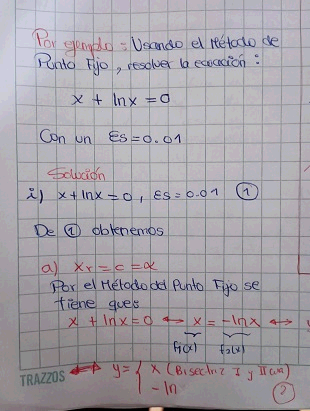 Por ejemplo: Usando el Método de
Punto Fijo, resolver la ecuación:
x + ln x = 0
Con un Es = 0.01
Solución
i) x + ln x = 0, Es = 0.01 ①
De ① obtenemos
a) Xr = c = α
Por el Método del Punto Fijo se
tiene que:
x + ln x = 0 ↔ x = -ln x ↔
f₁(x) f₂(x)
↔ y = { x (Bisectriz I y III
- ln
TRAZZOS
②